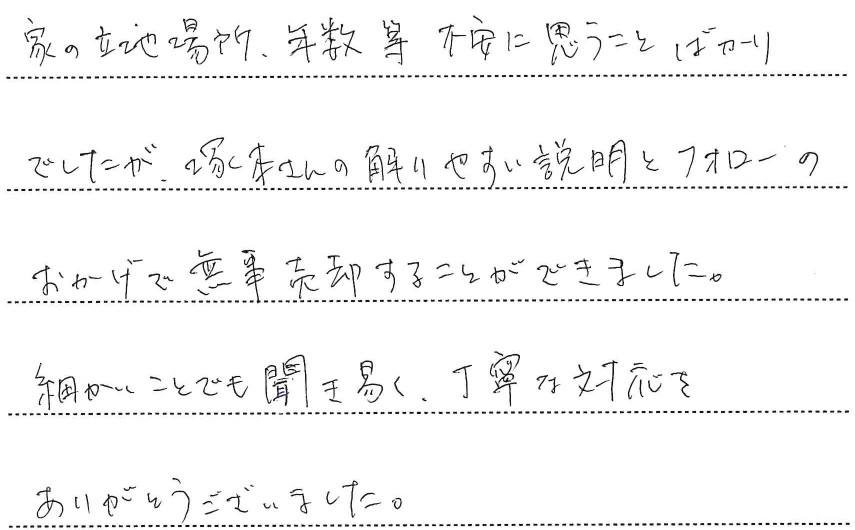 家の立地場所、年数等 不安に思うことばかり
でしたが、塚本さんの解りやすい説明とフォローの
おかげで無事売却することができました。
細かいことでも聞き易く、丁寧な対応を
ありがとうございました。